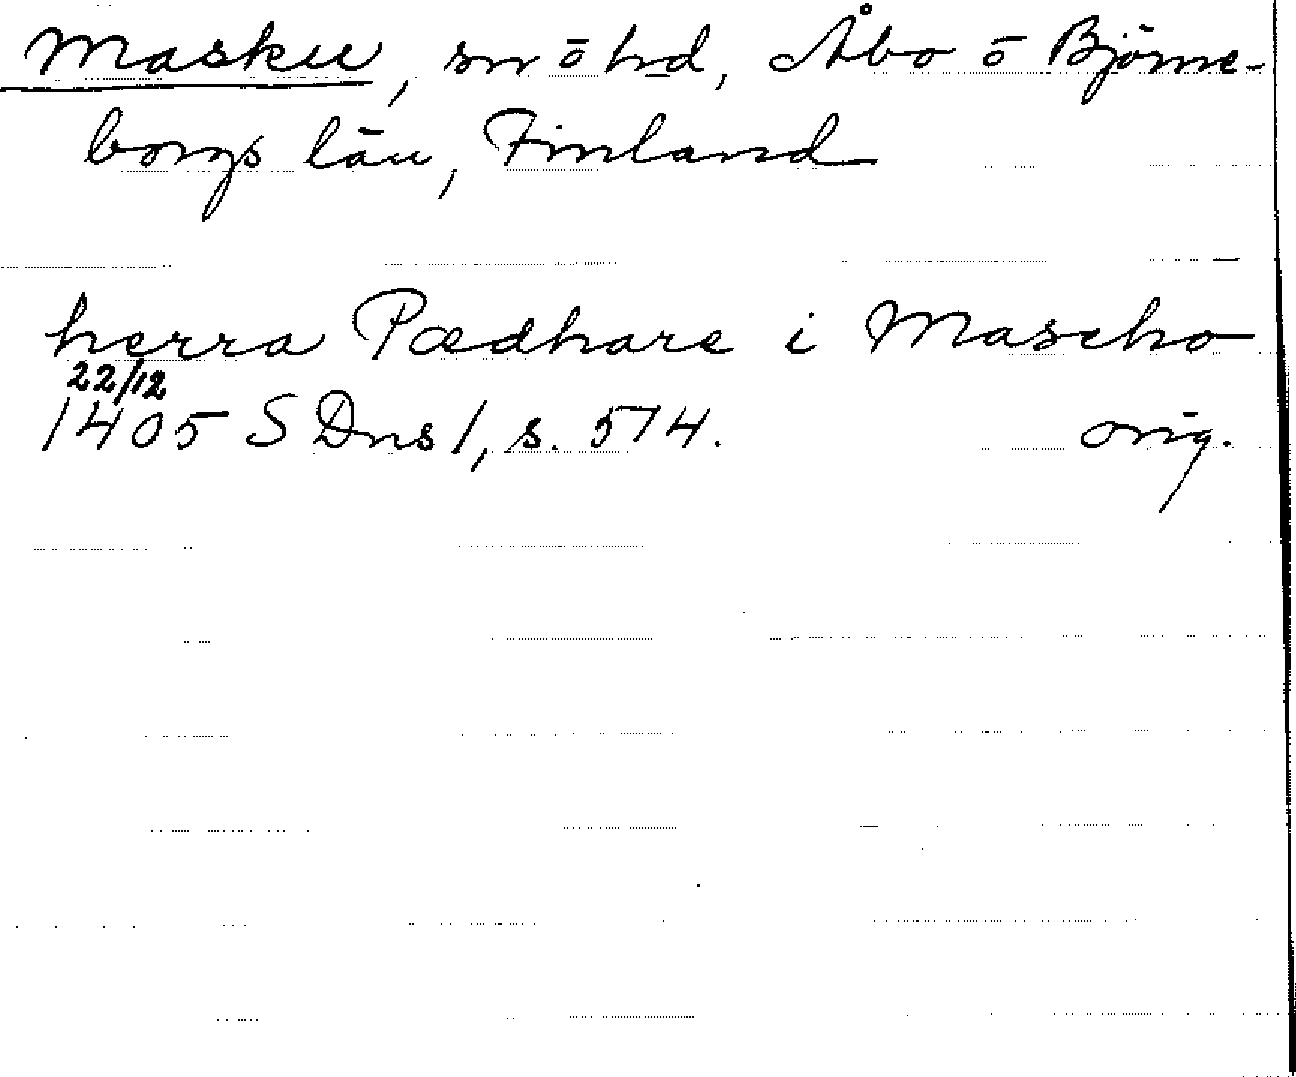 Masku, sn ō hd, Åbo ō Björne-
borgs län, Finland
herra Pædhare i Mascho
22/12
1405 S Dns 1, s. 574. orig.